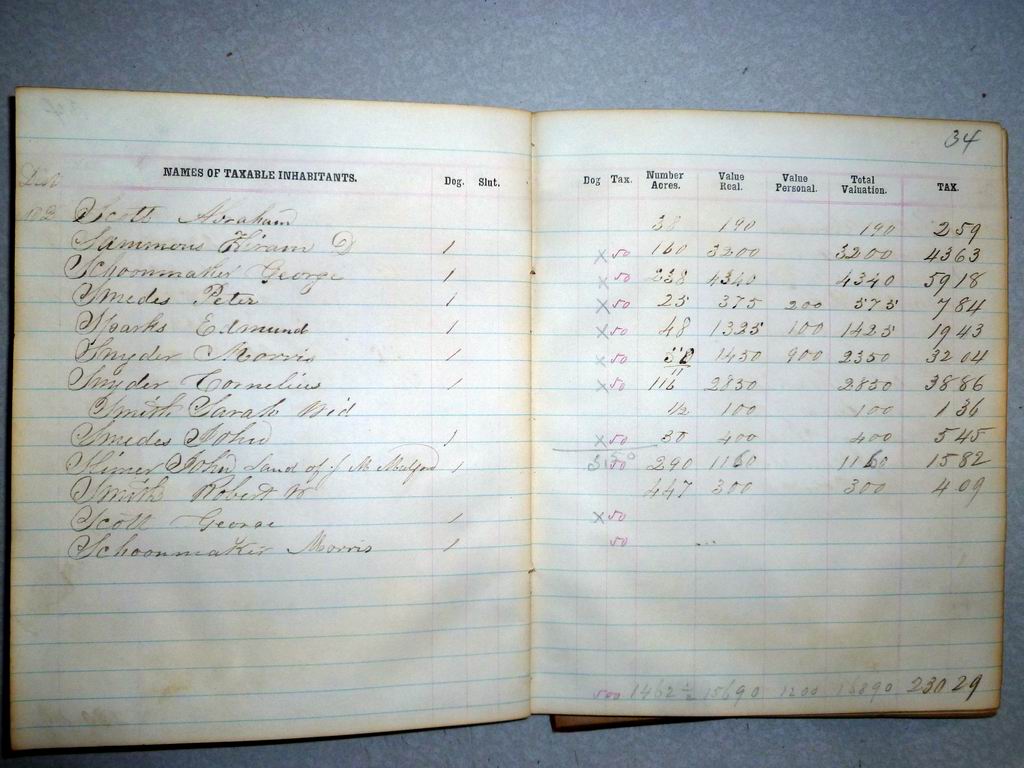 34
NAMES OF TAXABLE INHABITANTS. Dog. Slut. Dog Tax. Number Acres. Value Real. Value Personal. Total Valuation. TAX.
Scott Abraham 38 190 190 2 59
Sammons Hiram D 1 X 50 160 3200 3200 43 63
Schoonmaker George 1 X 50 238 4340 4340 59 18
Smedes Peter 1 X 50 25 375 200 575 7 84
Sparks Edmund 1 X 50 48 1325 100 1425 19 43
Snyder Morris 1 X 50 1450 900 2350 32 04
Snyder Cornelius 1 X 50 116 2850 2850 38 86
Smith Sarah Wid 1/2 100 100 1 36
Smedes John 1 X 50 30 400 400 5 45
John Land of J M Mulford 1 50 290 1160 1160 15 82
Smith Robert W 447 300 300 4 09
Scott George 1 X 50
Schoonmaker Morris 1 50
500 1462 1/2 15690 1200 16890 230 29